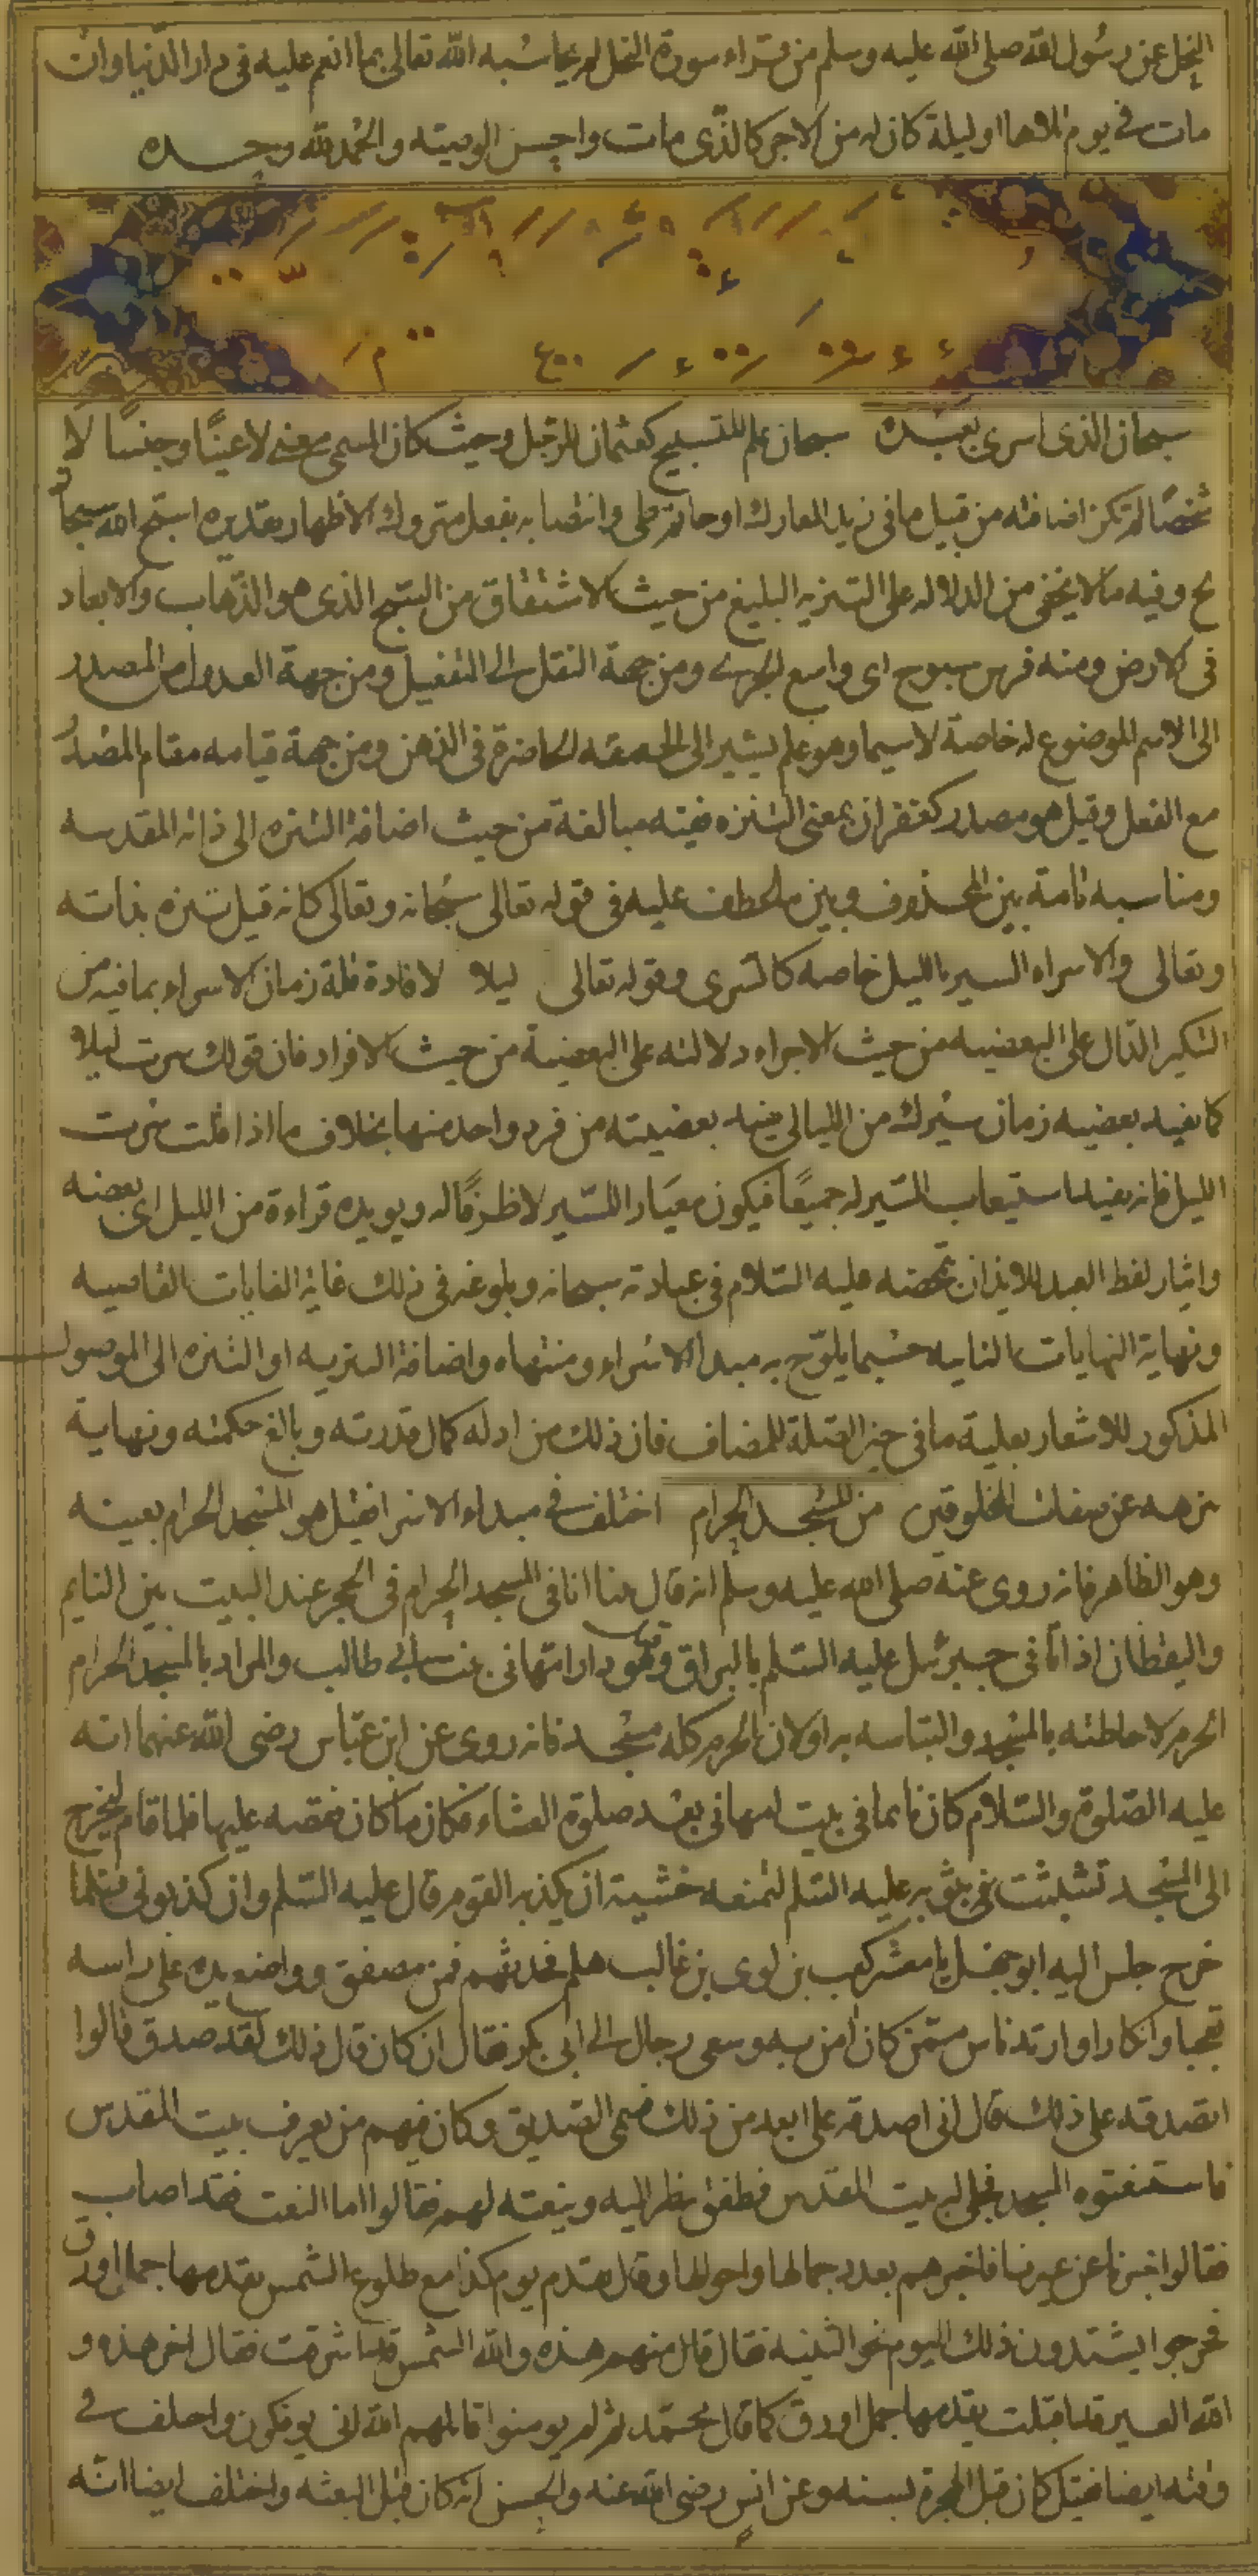 النحل عن رسول الله صلى الله عليه وسلم من قراء سورة النحل لم يحاسبه الله تعالى بما انعم عليه فى دار الدنيا وان
مات فى يوم تلاها او ليلة كان له من الاجر كالذى مات واحسن الوصية والحمد لله وحده
سبحان الذى اسرى بعبده سبحان علم للتسبيح كعثمان للرجل وحيث كان المسمى معنى لا عينا وجنسا لا
شخصا لم تكن اضافته من قبيل ما فى زيد المعارك او حاتم طى وانتصابه بفعل متروك الاظهار تقديره اسبح الله سبحان
الخ وفيه ما لا يخفى من الدلاله على التنزيه البليغ من حيث الاشتقاق من السبح الذى هو الذهاب والابعاد
فى الارض ومنه فرس سبوح اى واسع الجرى ومن جهة النقل الى التفعيل ومن جهة العدول من المصدر
الى الاسم الموضوع له خاصة لا سيما وهو علم يشير الى الحقيقه الحاضرة فى الذهن ومن جهة قيامه مقام المصدر
مع الفعل وقيل هو مصدر كغفران بمعنى التنزه ففيه مبالغة من حيث اضافة التنزه الى ذاته المقدسه
ومناسبه تامة بين المحذوف وبين ما عطف عليه فى قوله تعالى سبحانه وتعالى كانه قيل تنزه بذاته
وتعالى والاسراء السير بالليل خاصه كالسرى وقوله تعالى ليلا لافادة قلة زمان الاسراء بما فيه من
التنكير الدال على البعضيه من حيث الاجزاء دلالته على البعضية من حيث الافراد فان قولك سرت ليلا
كما يفيد بعضيه زمان سيرك من الليالى يفيد بعضيته من فرد واحد منها بخلاف ما اذا قلت سرت
الليل فانه يفيد استيعاب السير له جميعا فيكون معيارا للسير لا ظرفا له ويويده قراءة من الليل اى بعضه
وايثار لفظ العبد للايذان بتمحضه عليه السلام فى عبادته سبحانه وبلوغه فى ذلك غاية الغايات القاصيه
ونهاية النهايات النايه حسبما يلوح به مبدا الاسراء ومنتهاه واضافة التنزيه او التنزه الى الموصول
المذكور للاشعار بعلية ما فى حيز الصلة للمضاف فان ذلك من ادله كمال قدرته وبالغ حكمته ونهاية
تنزهه عن صفات المخلوقين من المسجد الحرام اختلف فى مبداء الاسرا فقيل هو المسجد الحرام بعينه
وهو الظاهر فانه روى عنه صلى الله عليه وسلم انه قال بينا انا فى المسجد الحرام فى الحجر عند البيت بين النايم
واليقظان اذ اتانى جبرئيل عليه السلم بالبراق وقيل هو دار ام هانى بنت ابى طالب والمراد بالمسجد الحرام
الحرم لاحاطته بالمسجد والتباسه به او لان الحرم كله مسجد فانه روى عن ابن عباس رضى الله عنهما انه
عليه الصلوة والسلام كان نايما فى بيت ام هانى بعد صلوة العشاء فكان ما كان فقصه عليها فلما قام ليخرج
الى المسجد تشبثت بثوبه عليه السلم لتمنعه خشية ان يكذبه القوم قال عليه السلم وان كذبونى فلما
خرج جلس اليه ابو جهل يا معشر كعب بن لوى بن غالب هلم فحدثهم فمن مصفق وواضع يده على راسه
تعجبا وانكارا وارتد ناس ممن كان امن به وسعى رجال الى ابى بكر فقال ان كان قال ذلك لقد صدق قالوا
اتصدقه على ذلك قال انى اصدقه على ابعد من ذلك فسمى الصديق وكان فيهم من يعرف بيت المقدس
فاستنعتوه المسجد فجلى له بيت المقدس فطفق ينظر اليه وينعته لهم فقالوا اما النعت فقد اصاب
فقالوا اخبرنا عن عيرنا فاخبرهم بعدد جمالها واحوالها وقال تقدم يوم كذا مع طلوع الشمس يقدمها جمل اورق
فخرجوا يشتدون ذلك اليوم نحو الثنيه فقال قائل منهم هذه والله الشمس قد اشرقت فقال اخر هذه و
الله العير قد اقبلت يقدمها جمل اورق كما قال محمد ثم لم يومنوا قاتلهم الله انى يوفكون واختلف فى
وقته ايضا فقيل كان قبل الهجرة بسنه وعن انس رضى الله عنه والحسن انه كان قبل البعثه واختلف ايضا انه